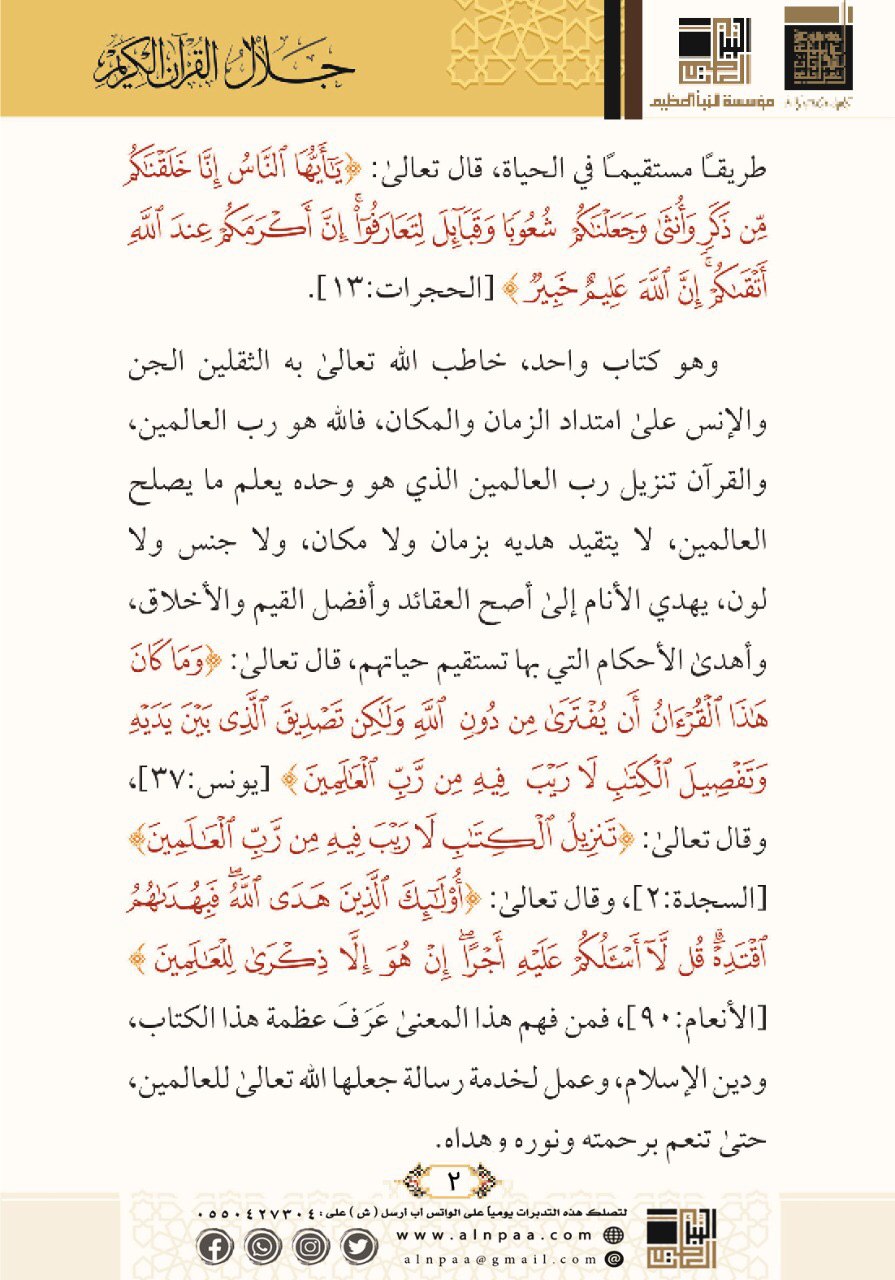 جلال القرآن الكريم
النبأ العظيم
مؤسسة النبأ العظيم
طريقًا مستقيمًا في الحياة، قال تعالىٰ: ﴿يَٰٓأَيُّهَا ٱلنَّاسُ إِنَّا خَلَقْنَٰكُم
مِّن ذَكَرٍ وَأُنثَىٰ وَجَعَلْنَٰكُمْ شُعُوبًا وَقَبَآئِلَ لِتَعَارَفُوٓا۟ ۚ إِنَّ أَكْرَمَكُمْ عِندَ ٱللَّهِ
أَتْقَىٰكُمْ ۚ إِنَّ ٱللَّهَ عَلِيمٌ خَبِيرٌ﴾ [الحجرات:١٣].
وهو كتاب واحد، خاطب الله تعالىٰ به الثقلين الجن
والإنس علىٰ امتداد الزمان والمكان، فالله هو رب العالمين،
والقرآن تنزيل رب العالمين الذي هو وحده يعلم ما يصلح
العالمين، لا يتقيد هديه بزمان ولا مكان، ولا جنس ولا
لون، يهدي الأنام إلىٰ أصح العقائد وأفضل القيم والأخلاق،
وأهدىٰ الأحكام التي بها تستقيم حياتهم، قال تعالىٰ: ﴿وَمَا كَانَ
هَٰذَا ٱلْقُرْءَانُ أَن يُفْتَرَىٰ مِن دُونِ ٱللَّهِ وَلَٰكِن تَصْدِيقَ ٱلَّذِى بَيْنَ يَدَيْهِ
وَتَفْصِيلَ ٱلْكِتَٰبِ لَا رَيْبَ فِيهِ مِن رَّبِّ ٱلْعَٰلَمِينَ﴾ [يونس:٣٧]،
وقال تعالىٰ: ﴿تَنزِيلُ ٱلْكِتَٰبِ لَا رَيْبَ فِيهِ مِن رَّبِّ ٱلْعَٰلَمِينَ﴾
[السجدة:٢]، وقال تعالىٰ: ﴿أُو۟لَٰٓئِكَ ٱلَّذِينَ هَدَى ٱللَّهُ ۖ فَبِهُدَىٰهُمُ
ٱقْتَدِهْ ۗ قُل لَّآ أَسْـَٔلُكُمْ عَلَيْهِ أَجْرًا ۖ إِنْ هُوَ إِلَّا ذِكْرَىٰ لِلْعَٰلَمِينَ﴾
[الأنعام:٩٠]، فمن فهم هذا المعنىٰ عَرَفَ عظمة هذا الكتاب،
ودين الإسلام، وعمل لخدمة رسالة جعلها الله تعالىٰ للعالمين،
حتىٰ تنعم برحمته ونوره وهداه.
٢
لتصلك هذه التدبرات يومياً على الواتس اب ارسل (ش) على: ٠٥٥٠٤٢٧٣٠٤
www.alnpaa.com
alnpaa@gmail.com
النبأ العظيم